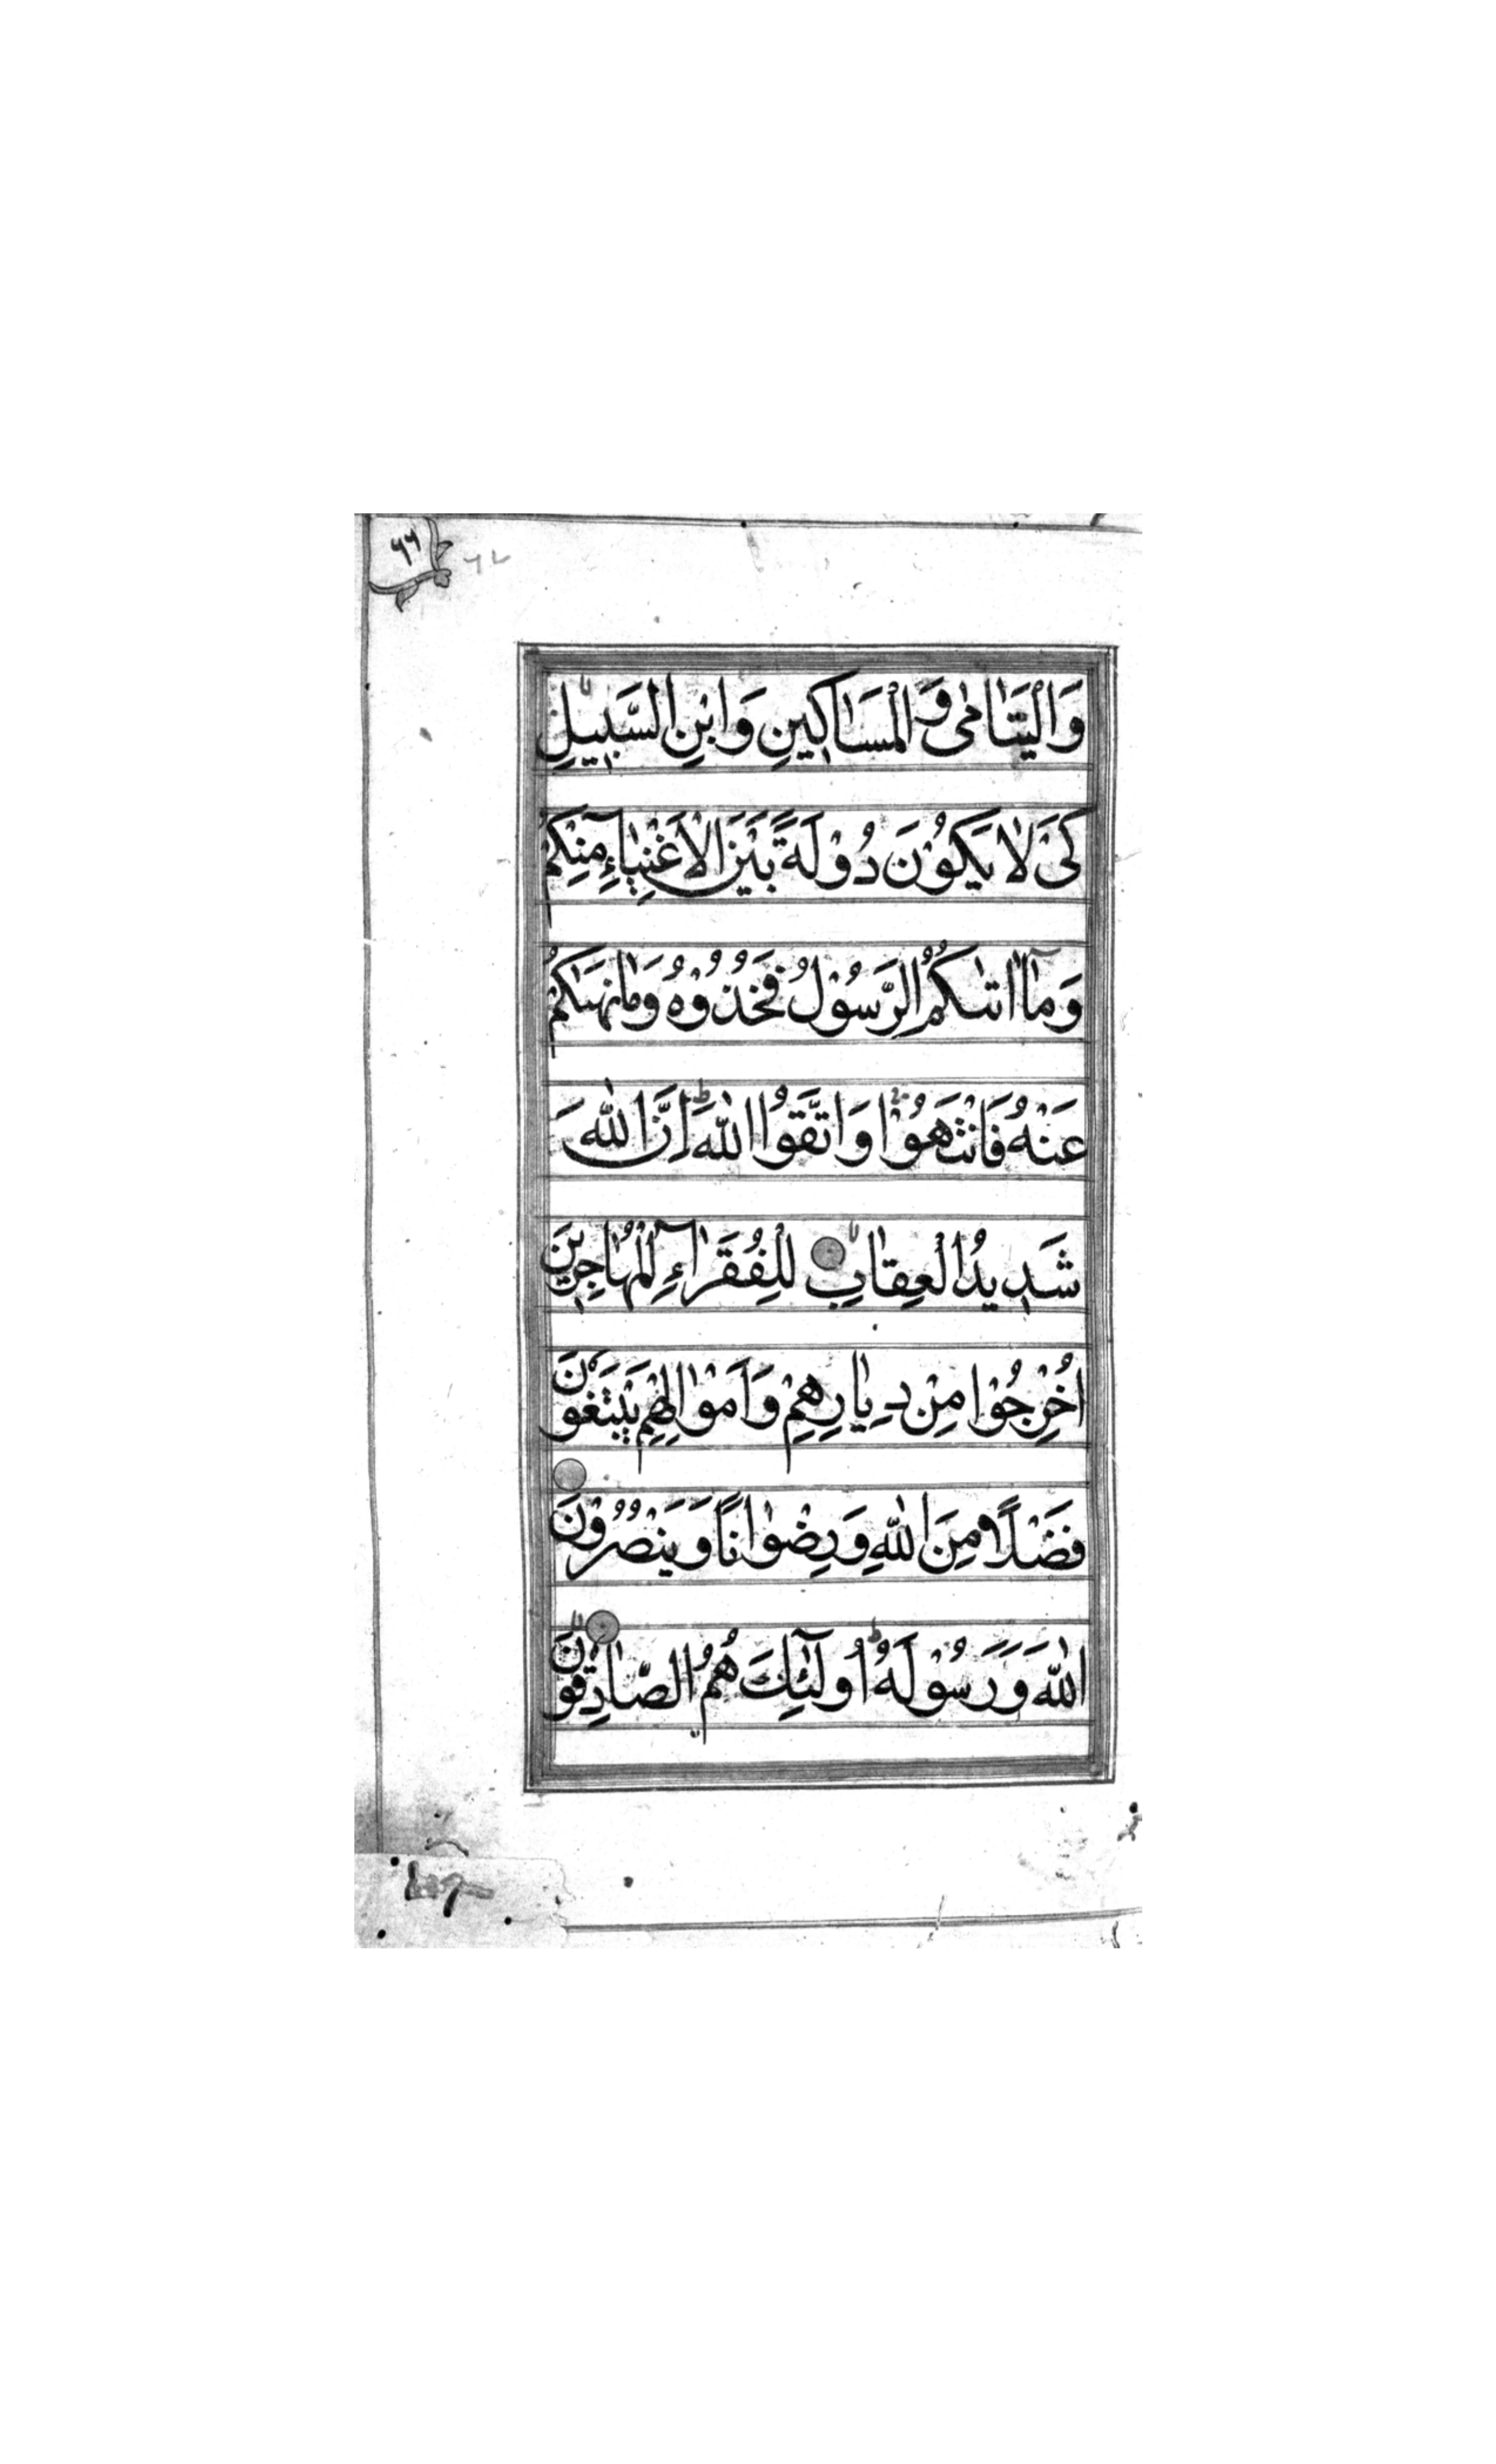 ٦٦
٦٧
وَالْيَتَامٰى وَالْمَسَاكِينِ وَابْنِ السَّبِيلِ
كَىْ لَا يَكُوْنَ دُوْلَةً بَيْنَ الْاَغْنِيَاءِ مِنْكُمْ
وَمَآ اٰتٰىكُمُ الرَّسُوْلُ فَخُذُوْهُ وَمَا نَهٰىكُمْ
عَنْهُ فَانْتَهُوْا وَاتَّقُوا اللّٰهَ ط اِنَّ اللّٰهَ
شَدِيدُ الْعِقَابِ لا لِلْفُقَرَآءِ الْمُهَاجِرِينَ
اُخْرِجُوْا مِنْ دِيَارِهِمْ وَاَمْوَالِهِمْ يَبْتَغُوْنَ
فَضْلًا مِنَ اللّٰهِ وَرِضْوَانًا وَيَنْصُرُوْنَ
اللّٰهَ وَرَسُوْلَهُ ط اُولٰٓئِكَ هُمُ الصَّادِقُوْنَ